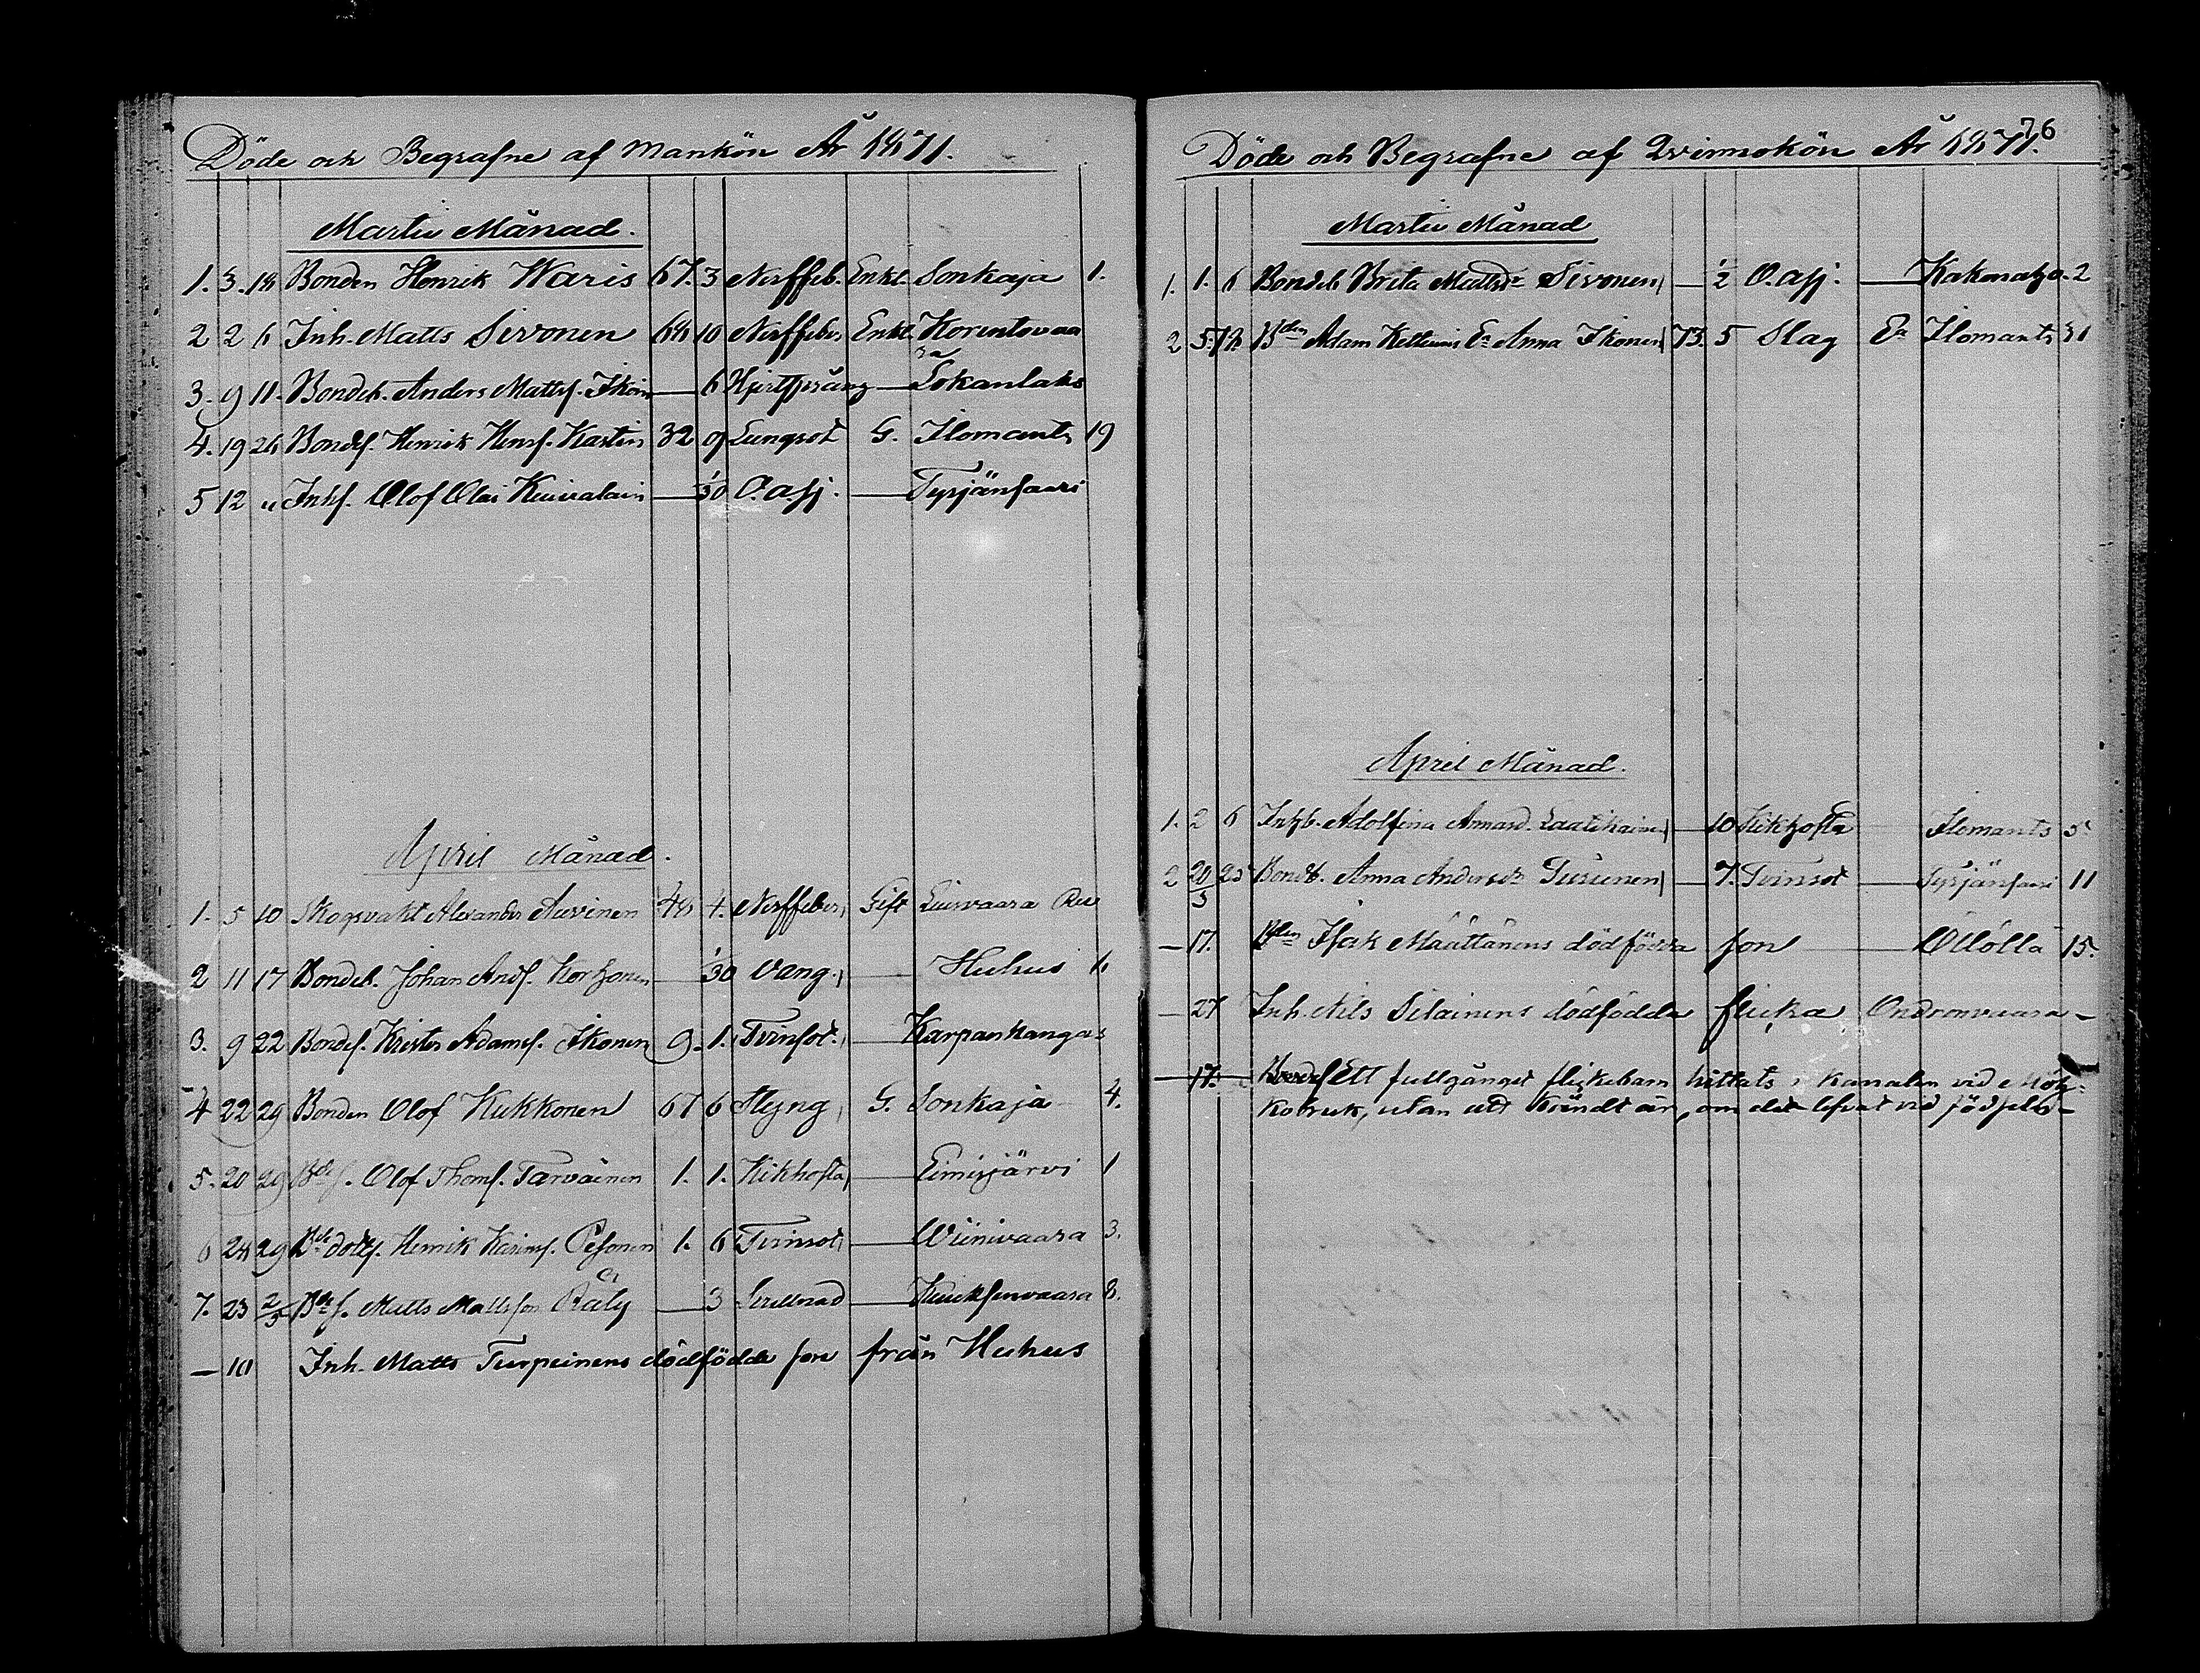 Döde och Begrafne af Mankön År 1871.
Martii Månad.
1. 3. 18 Bonden Henrik Waris 67. 3 Nerffeb. Enkl. Sonkaja 1.
2 2 6 Inh. Matts Sivonen 68 10 Nerffeber Enkl. Korentovaa
ra
3. 9 11. Bondeb. Anders Mattss. Ikoin — 6 Hjertsprång — Sokanlaks
4. 19 26 Bondes. Henrik Henrs. Kastin 32 9 Lungsot G. Ilomants 19
5 12 " Inhs. Olof Olai Kuivalain — 1/30 O. asj. — Tyrjänsaari
April Månad.
1. 5 10 Skogsvakt Alexander Auvinen 48 4. Nerffeber, Gift Liusvaara
2 11 17 Bondeb. Johan Ands. Korhonen — 1/30 Oang. — Huhus 6
3. 9 22 Bondes. Krister Adams. Ikonen 9. 1. Tvinsot. — Karpankangas
4 22 29 Bonden Olof Kukkonen 67 6 Styng, G. Sonkaja 4.
5. 20 29 Bdes. Olof Thoms. Tarvainen 1. 1. Kikhosta — Eimisjärvi 1
6 24 29 Bde dotts. Henrik Karins. Pesonen 1. 6 Tvinsot — Wiinivaara 3.
7. 23 2/5 Bdes. Matts Mattsson Räty — 3 — Kuuksenvaara 8.
— 10 Inh. Matts Turpeinens dödfödde son från Huhus
76
Döde och Begrafne af Qvinnokön År 1871.
Martii Månad
1. 1. 6 Bondeb. Brita Mattsdr Sivonen — 1/2 O. asj. — Kakonaho. 2
2 5. 12. Bden Adam Kettunens Ea Anna Ikonen 73. 5 Slag Ea Ilomants 31
April Månad.
1. 2 6 Inhb. Adolfina Annasd. Laatikainen — 10 Kikhosta Ilomants 5
2 20/3 25 Bondb. Anna Andersdr Turunen — 7. Tvinsot — Tyrjänsaari 11
— 17. Bden Isak Määttänens dödfödda son — Öllölä 15.
— 27 Inh. Nils Silainens dödfödda flicka Ondronvaara —
— 17. — Ett fullgånget flickebarn hittats i kanalen vid Möh-
kobruk, utan att kändt är, om det lefvat vid födseln —